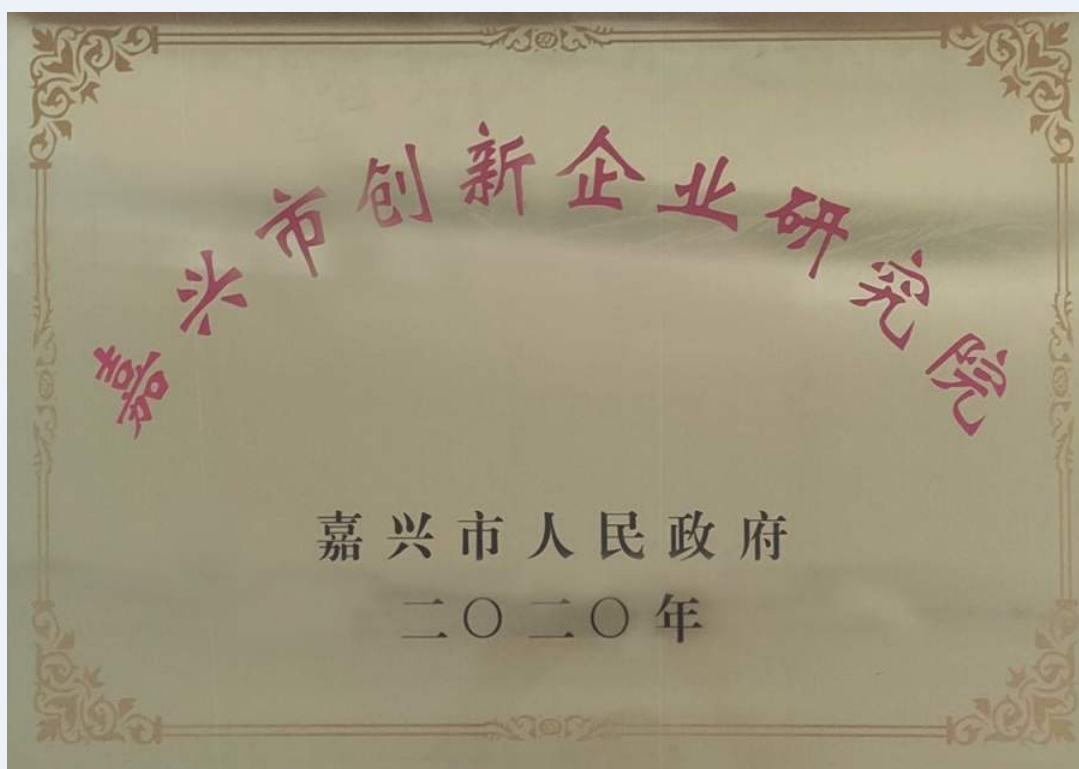 嘉兴市创新企业研究院
嘉兴市人民政府
二〇二〇年